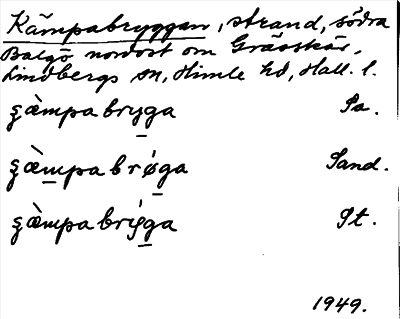 Kämpabryggan, strand, södra
Balgö nordost om Grässkär,
Lindbergs sn, Himle hd, Hall. l.
ȿæ̀mpabryga Sa.
ȿæ̀mpabrǿga Sand.
ȿæ̀mpabrýga St.
1949.